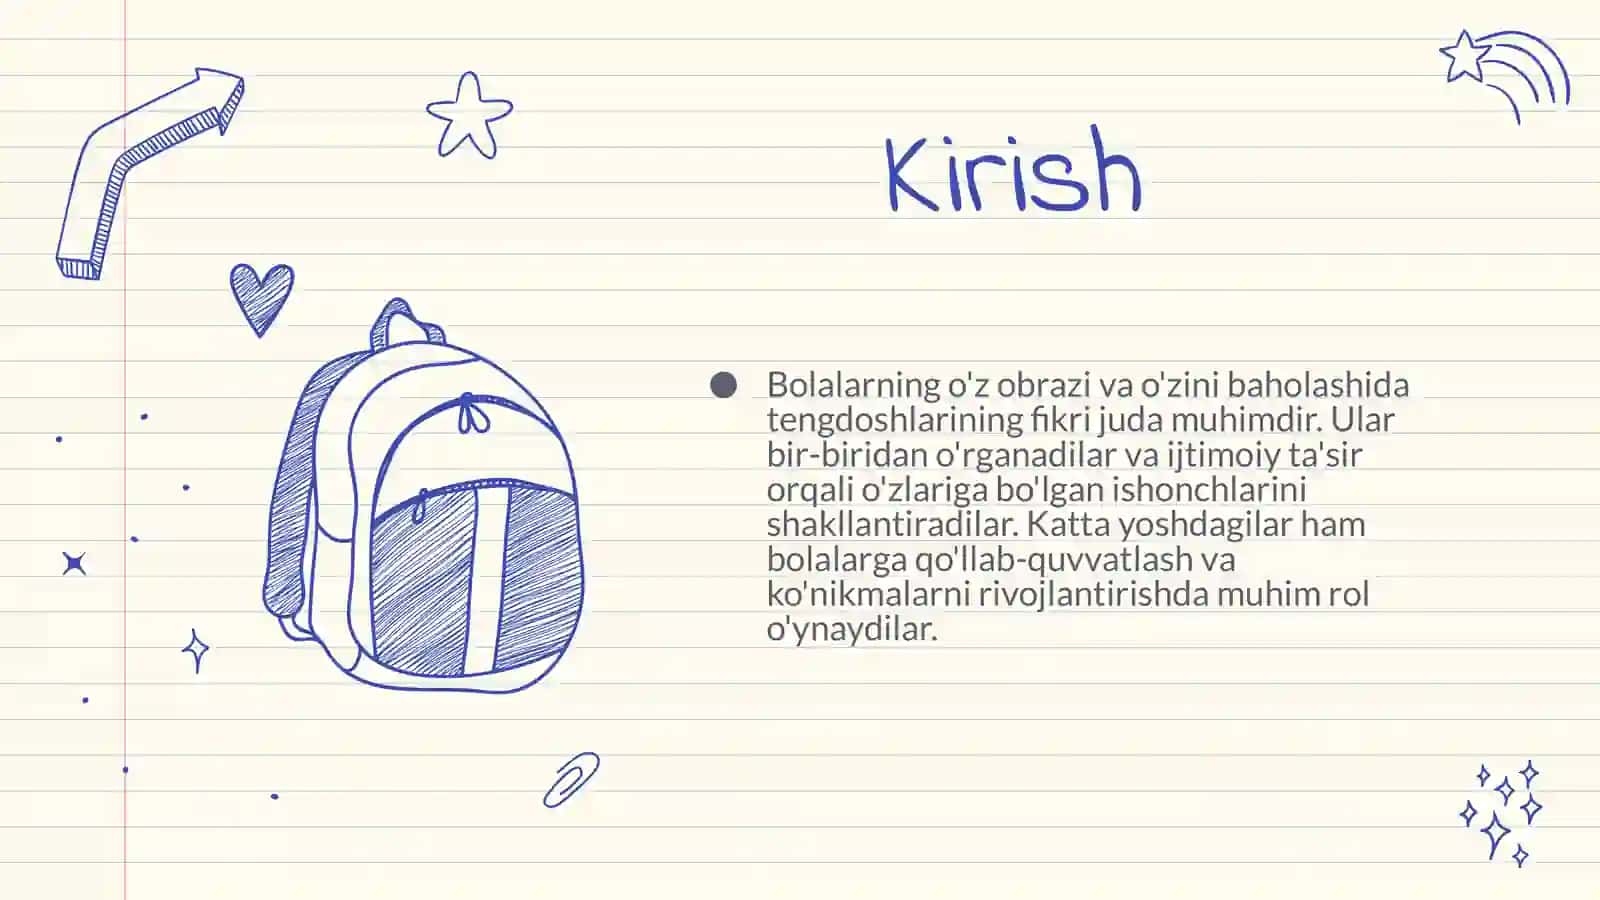 Kirish
Bolalarning o'z obrazi va o'zini baholashida
tengdoshlarining fikri juda muhimdir. Ular
bir-biridan o'rganadilar va ijtimoiy ta'sir
orqali o'zlariga bo'lgan ishonchlarini
shakllantiradilar. Katta yoshdagilar ham
bolalarga qo'llab-quvvatlash va
ko'nikmalarni rivojlantirishda muhim rol
o'ynaydilar.